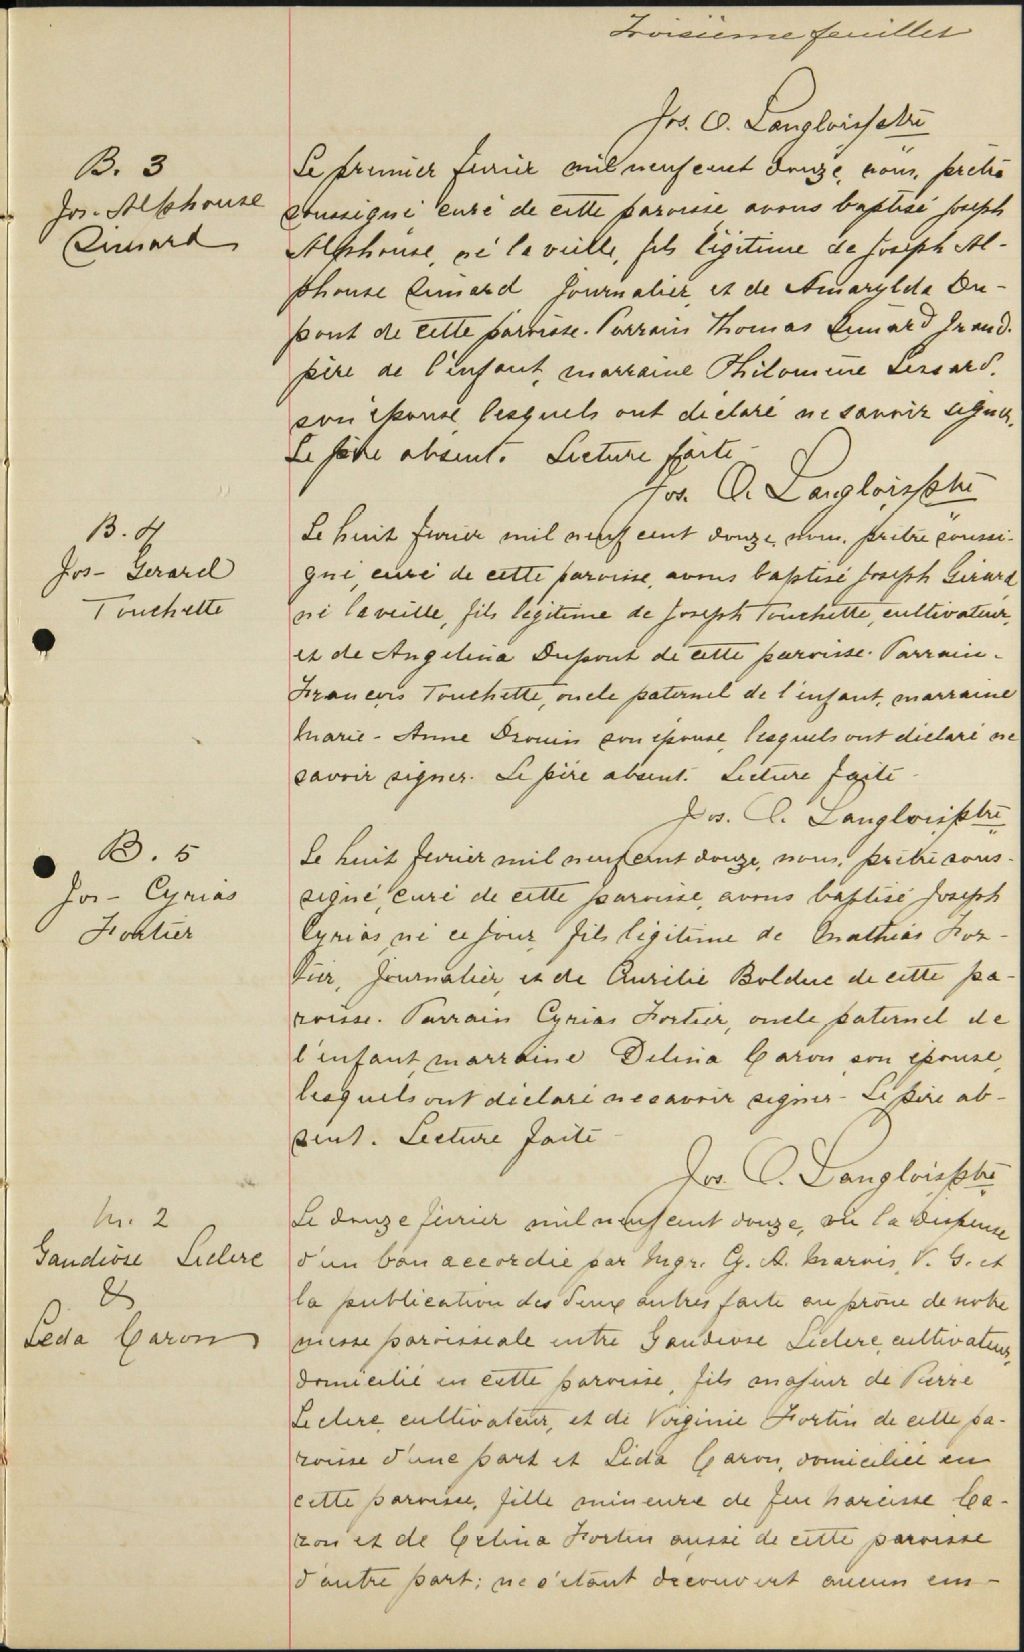 Troisième feuillet
Jos. O. Langlois ptre
B. 3
Jos. Alphonse
Simard
Le premier fevrier mil neuf cent douze, nous, prêtre
soussigné curé de cette paroisse, avons baptisé Joseph
Alphonse, né la veille, fils légitime de Joseph Al-
phonse Simard journalier, et de Amarylda Du-
pont de cette paroisse. Parrain Thomas Simard grand-
père de l'enfant, marraine Philomène Lessard,
son épouse, lesquels ont déclaré ne savoir signer.
Le père absent. Lecture faite -
Jos. O. Langlois ptre
B. 4
Jos - Gerard
Touchette
Le huit fevrier mil neuf cent douze, nous, prêtre soussi-
gné, curé de cette paroisse, avons baptisé Joseph Gérard
né la veille, fils légitime de Joseph Touchette, cultivateur,
et de Angelina Dupont de cette paroisse. Parrain -
François Touchette, oncle paternel de l'enfant, marraine
Marie - Anne Drouin son épouse, lesquels ont déclaré ne
savoir signer. Le père absent. Lecture faite -
Jos. O. Langlois ptre
B. 5
Jos - Cyrias
Fortier
Le huit fevrier mil neuf cent douze, nous, prêtre sous-
signé, curé de cette paroisse, avons baptisé Joseph
Cyrias, né ce jour, fils légitime de Mathias For-
tier, journalier, et de Aurélie Bolduc de cette pa-
roisse. Parrain Cyrias Fortier, oncle paternel de
l'enfant, marraine Delina Caron, son épouse,
lesquels ont déclaré ne savoir signer - Le père ab-
sent. Lecture faite -
Jos. O. Langlois ptre
M. 2
Gaudiose Leclerc
&
Léda Caron
Le douze février mil neuf cent douze, vu la dispense
d'un ban accordée par Mgr. C. A. Marois, V. G. et
la publication des deux autres faite au prône de notre
messe paroissiale entre Gaudiose Leclerc, cultivateur,
domicilié en cette paroisse, fils majeur de Pierre
Leclerc, cultivateur, et de Virginie Fortin de cette pa-
roisse d'une part et Léda Caron, domiciliée en
cette paroisse, fille mineure de feu Narcisse Ca-
ron et de Celina Fortin aussi de cette paroisse
d'autre part; ne s'étant découvert aucun em-